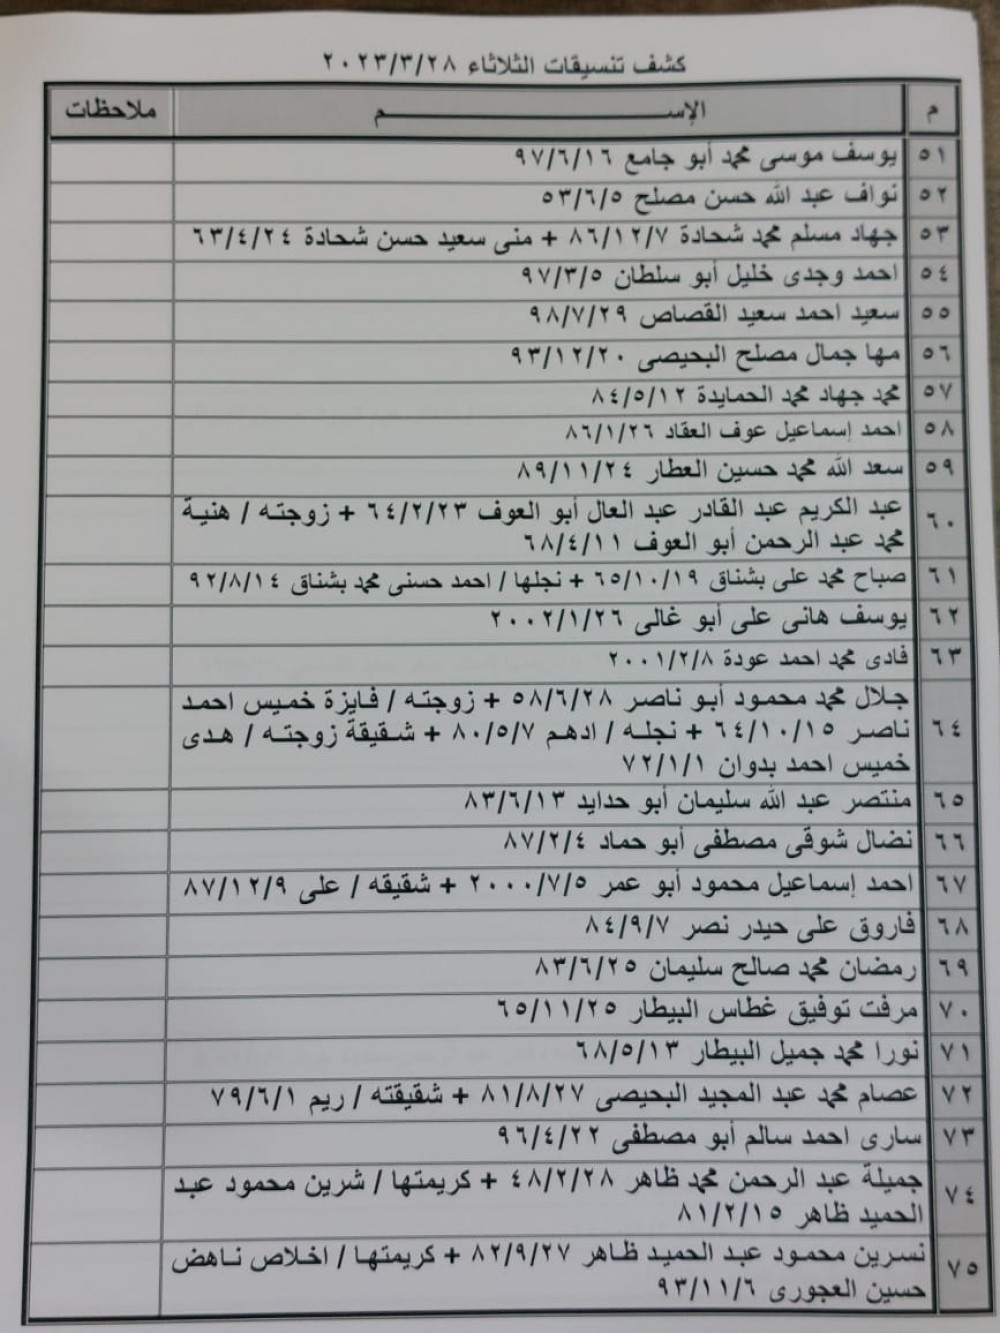 كشف تنسيقات الثلاثاء ٢٠٢٣/٣/٢٨
م الإســـــــــم ملاحظات
٥١ يوسف موسى محمد أبو جامع ٩٧/٦/١٦
٥٢ نواف عبد الله حسن مصلح ٥٣/٦/٥
٥٣ جهاد مسلم محمد شحادة ٨٦/١٢/٧ + منى سعيد حسن شحادة ٦٣/٤/٢٤
٥٤ احمد وجدى خليل أبو سلطان ٩٧/٣/٥
٥٥ سعيد احمد سعيد القصاص ٩٨/٧/٢٩
٥٦ مها جمال مصلح البحيصى ٩٣/١٢/٢٠
٥٧ محمد جهاد محمد الحمايدة ٨٤/٥/١٢
٥٨ احمد إسماعيل عوف العقاد ٨٦/١/٢٦
٥٩ سعد الله محمد حسين العطار ٨٩/١١/٢٤
٦٠ عبد الكريم عبد القادر عبد العال أبو العوف ٦٤/٢/٢٣ + زوجته / هنية
محمد عبد الرحمن أبو العوف ٦٨/٤/١١
٦١ صباح محمد على بشناق ٦٥/١٠/١٩ + نجلها / احمد حسنى محمد بشناق ٩٢/٨/١٤
٦٢ يوسف هانى على أبو غالى ٢٠٠٢/١/٢٦
٦٣ فادى محمد احمد عودة ٢٠٠١/٢/٨
٦٤ جلال محمد محمود أبو ناصر ٥٨/٦/٢٨ + زوجته / فايزة خميس احمد
ناصر ٦٤/١٠/١٥ + نجله / ادهم ٨٠/٥/٧ + شقيقة زوجته / هدى
خميس احمد بدوان ٧٢/١/١
٦٥ منتصر عبد الله سليمان أبو حدايد ٨٣/٦/١٣
٦٦ نضال شوقى مصطفى أبو حماد ٨٧/٢/٤
٦٧ احمد إسماعيل محمود أبو عمر ٢٠٠٠/٧/٥ + شقيقه / على ٨٧/١٢/٩
٦٨ فاروق على حيدر نصر ٨٤/٩/٧
٦٩ رمضان محمد صالح سليمان ٨٣/٦/٢٥
٧٠ مرفت توفيق غطاس البيطار ٦٥/١١/٢٥
٧١ نورا محمد جميل البيطار ٦٨/٥/١٣
٧٢ عصام محمد عبد المجيد البحيصى ٨١/٨/٢٧ + شقيقته / ريم ٧٩/٦/١
٧٣ سارى احمد سالم أبو مصطفى ٩٦/٤/٢٢
٧٤ جميلة عبد الرحمن محمد ظاهر ٤٨/٢/٢٨ + كريمتها / شرين محمود عبد
الحميد ظاهر ٨١/٢/١٥
٧٥ نسرين محمود عبد الحميد ظاهر ٨٢/٩/٢٧ + كريمتها / اخلاص ناهض
حسين العجورى ٩٣/١١/٦